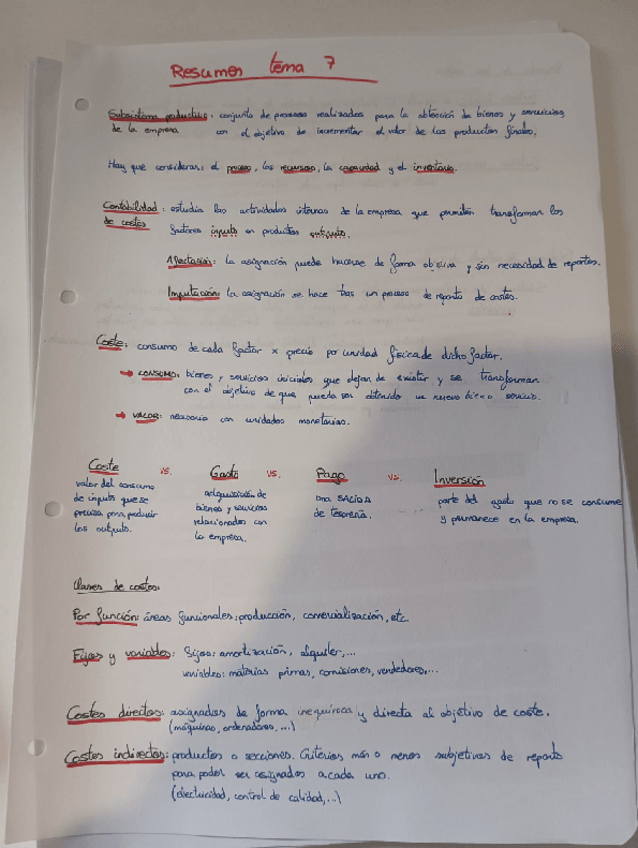 Resumen tema 7
Subsistema productivo: conjunto de procesos realizados para la obtención de bienes y servicios,
de la empresa con el objetivo de incrementar el valor de los productos finales.
Hay que considerar: el proceso, los recursos, la capacidad y el inventario.
Contabilidad: estudia las actividades internas de la empresa que permiten transformar los
de costes factores inputs en productos outputs.
Afectación: la asignación puede hacerse de forma objetiva y sin necesidad de repartos.
Imputación: la asignación se hace tras un proceso de reparto de costes.
Coste: consumo de cada factor x precio por unidad física de dicho factor.
→ CONSUMO: bienes y servicios iniciales que dejan de existir y se transforman
con el objetivo de que pueda ser obtenido un nuevo bien o servicio.
→ VALOR: necesario con unidades monetarias.
Coste vs. Gasto vs. Pago vs. Inversión
valor del consumo adquisición de una SALIDA parte del gasto que no se consume
de inputs que se bienes y servicios de tesorería. y permanece en la empresa.
precisa para producir relacionados con
los outputs. la empresa.
Clases de costes:
Por función: áreas funcionales: producción, comercialización, etc.
Fijos y variables: fijos: amortización, alquiler,...
variables: materias primas, comisiones, vendedores,...
Costes directos: asignados de forma inequívoca y directa al objetivo de coste.
(máquinas, ordenadores,...)
Costes indirectos: productos o secciones. Criterios más o menos subjetivos de reparto
para poder ser asignados a cada uno.
(electricidad, control de calidad,...)